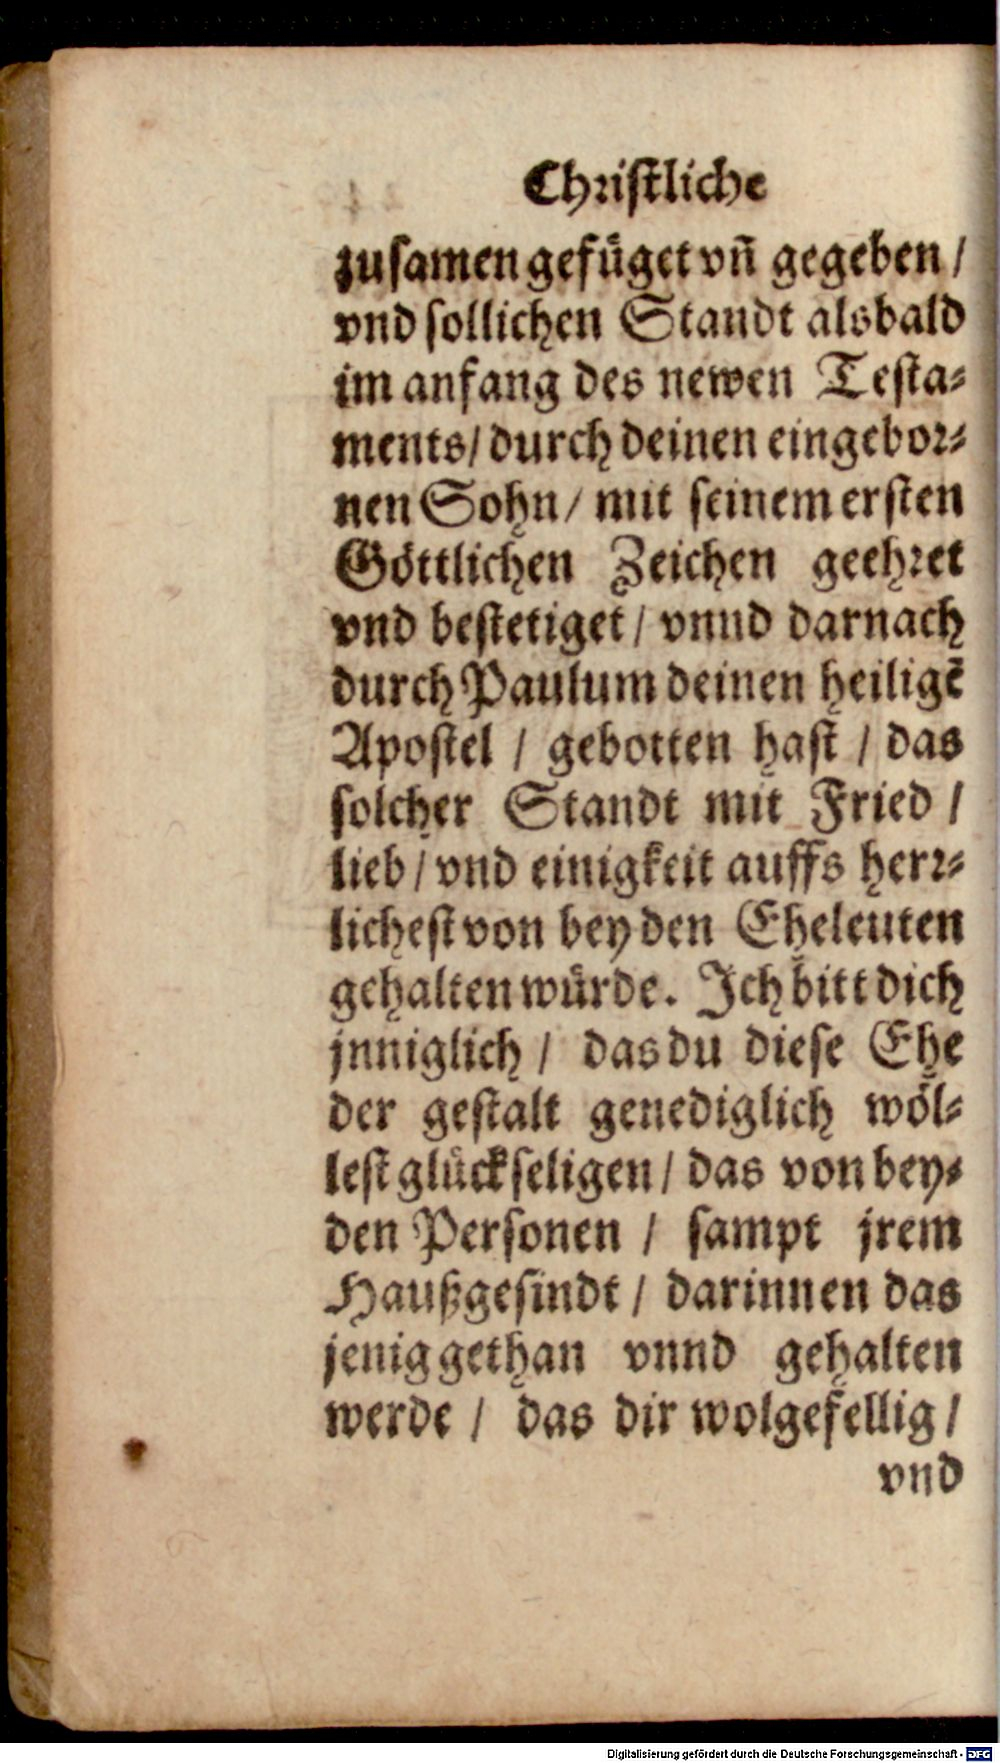 Christliche
zusamen gefüget vñ gegeben /
vnd sollichen Standt alsbald
im anfang des newen Testa-
ments / durch deinen eingebor-
nen Sohn / mit seinem ersten
Göttlichen Zeichen geehret
vnd bestetiget / vnnd darnach
durch Paulum deinen heiligē
Apostel / gebotten hast / das
solcher Standt mit Fried /
lieb / vnd einigkeit auffs herr-
lichest von beyden Eheleuten
gehalten würde. Ich bitt dich
jnniglich / das du diese Ehe
der gestalt genediglich wöl-
lest glückseligen / das von bey-
den Personen / sampt jrem
Haußgesindt / darinnen das
jenig gethan vnnd gehalten
werde / das dir wolgefellig /
vnd
Digitalisierung gefördert durch die Deutsche Forschungsgemeinschaft - DFG